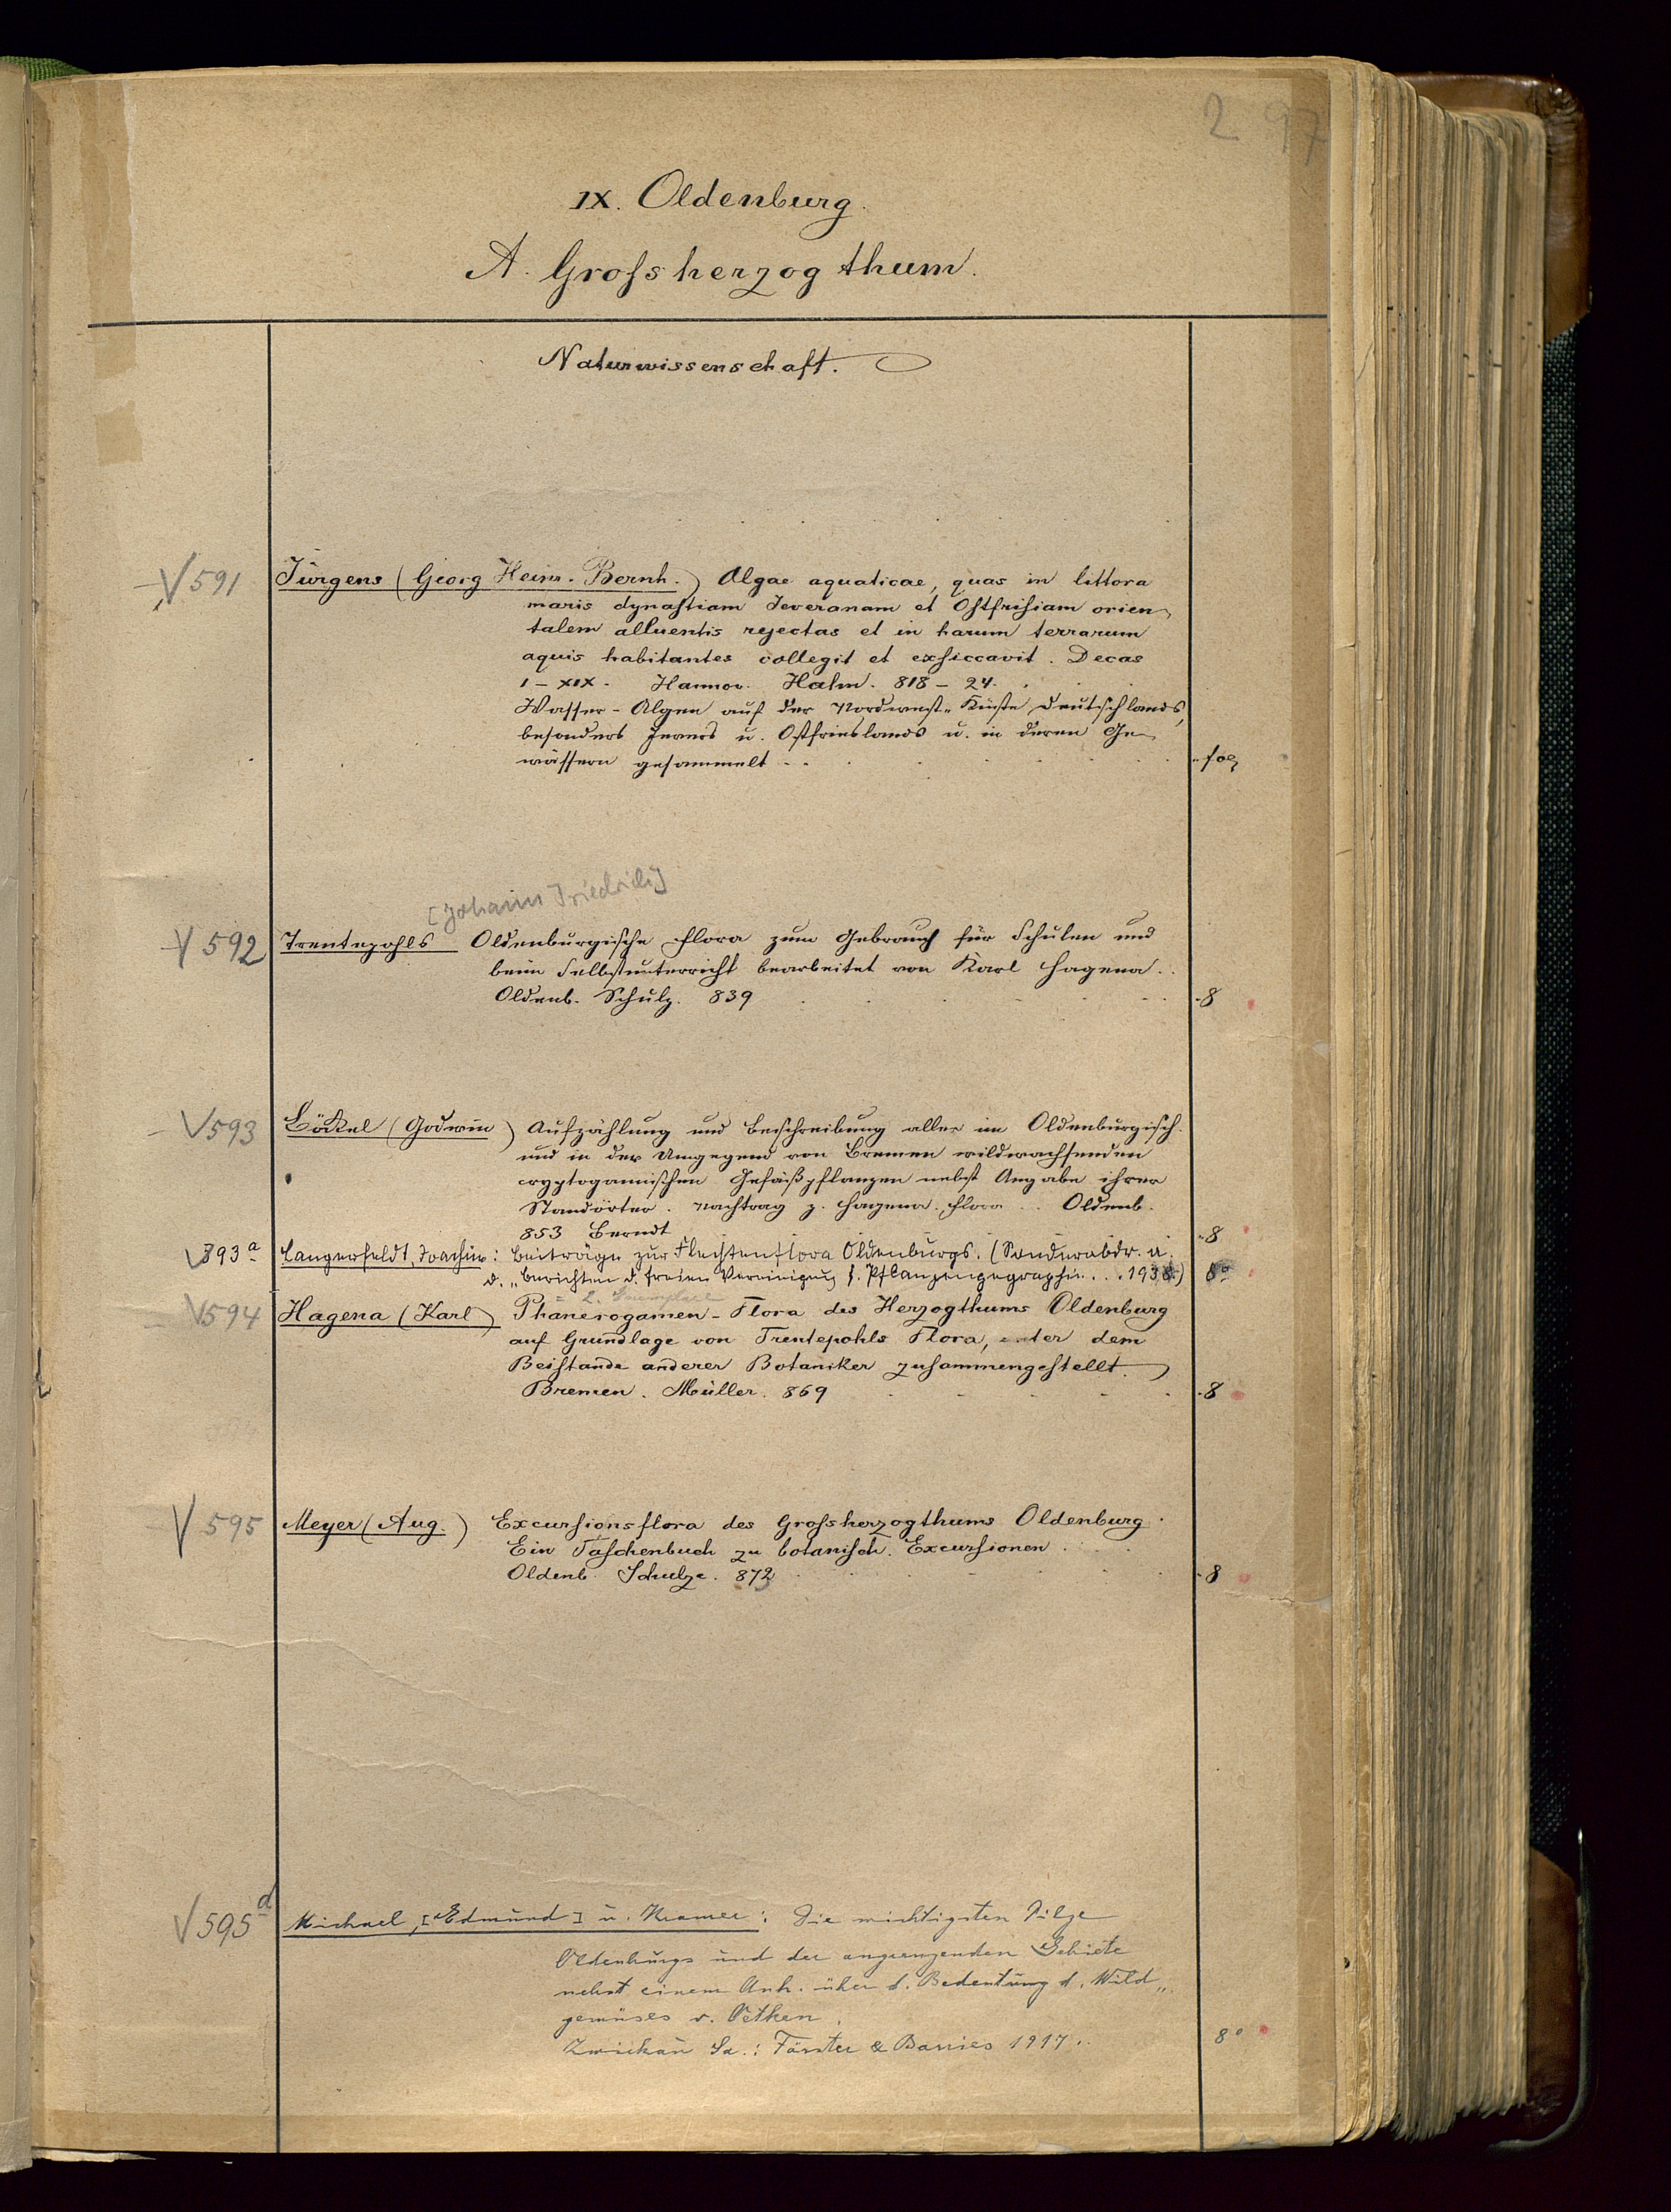 2 97
IX. Oldenburg.
A. Grofsherzogthum.
Naturwissenschaft.
591 Jürgens (Georg Heinr. Bernh.) Algae aquaticae, quas in littora
maris dynastiam Jeveranam et Ostfrisiam orien-
talem alluentis rejectas et in harum terrarum
aquis habitantes collegit et exsiccavit. Decas
I - XIX. Hannov. Hahn. 818 - 24.
Wasser-Algen auf der Nordwest-Küste Deutschlands,
besonders Jevers u. Ostfrieslands u. in deren Ge-
wässern gesammelt - fol
[Johann Friedrich]
592 Trentepohls Oldenburgische Flora zum Gebrauch für Schulen und
beim Selbstunterricht bearbeitet von Karl Hagena.
Oldenb. Schulz. 839 - 8
593 Böckel (Godwin) Aufzählung und Beschreibung aller im Oldenburgisch.
und in der Umgegend von Bremen wildwachsenden
cryptogamischen Gefäßpflanzen nebst Angabe ihrer
Standörter. Nachtrag z. Hagena. Flora. Oldenb.
853 Berndt - 8
593a Langerfeldt, Joachim: Beiträge zur Flechtenflora Oldenburgs. (Sonderabdr. a.
d. „Berichten d. freien Vereinigung f. Pflanzengeographie... 1938.) 8°
= 2. Exemplare
594 Hagena (Karl) Phanerogamen-Flora des Herzogthums Oldenburg
auf Grundlage von Trentepohls Flora, unter dem
Beistande anderer Botaniker zusammengestellt.
Bremen. Müller. 869 - 8
595 Meyer (Aug.) Excursionsflora des Grofsherzogthums Oldenburg.
Ein Taschenbuch zu botanisch. Excursionen.
Oldenb. Schulze. 872 - 8
595a Michael, [Edmund] u. Kramer: Die wichtigsten Pilze
Oldenburgs und der angrenzenden Gebiete
nebst einem Anh. über d. Bedeutung d. Wild-
gemüses v. Oetken.
Zwickau Sa.: Förster & Borries 1917. 8°